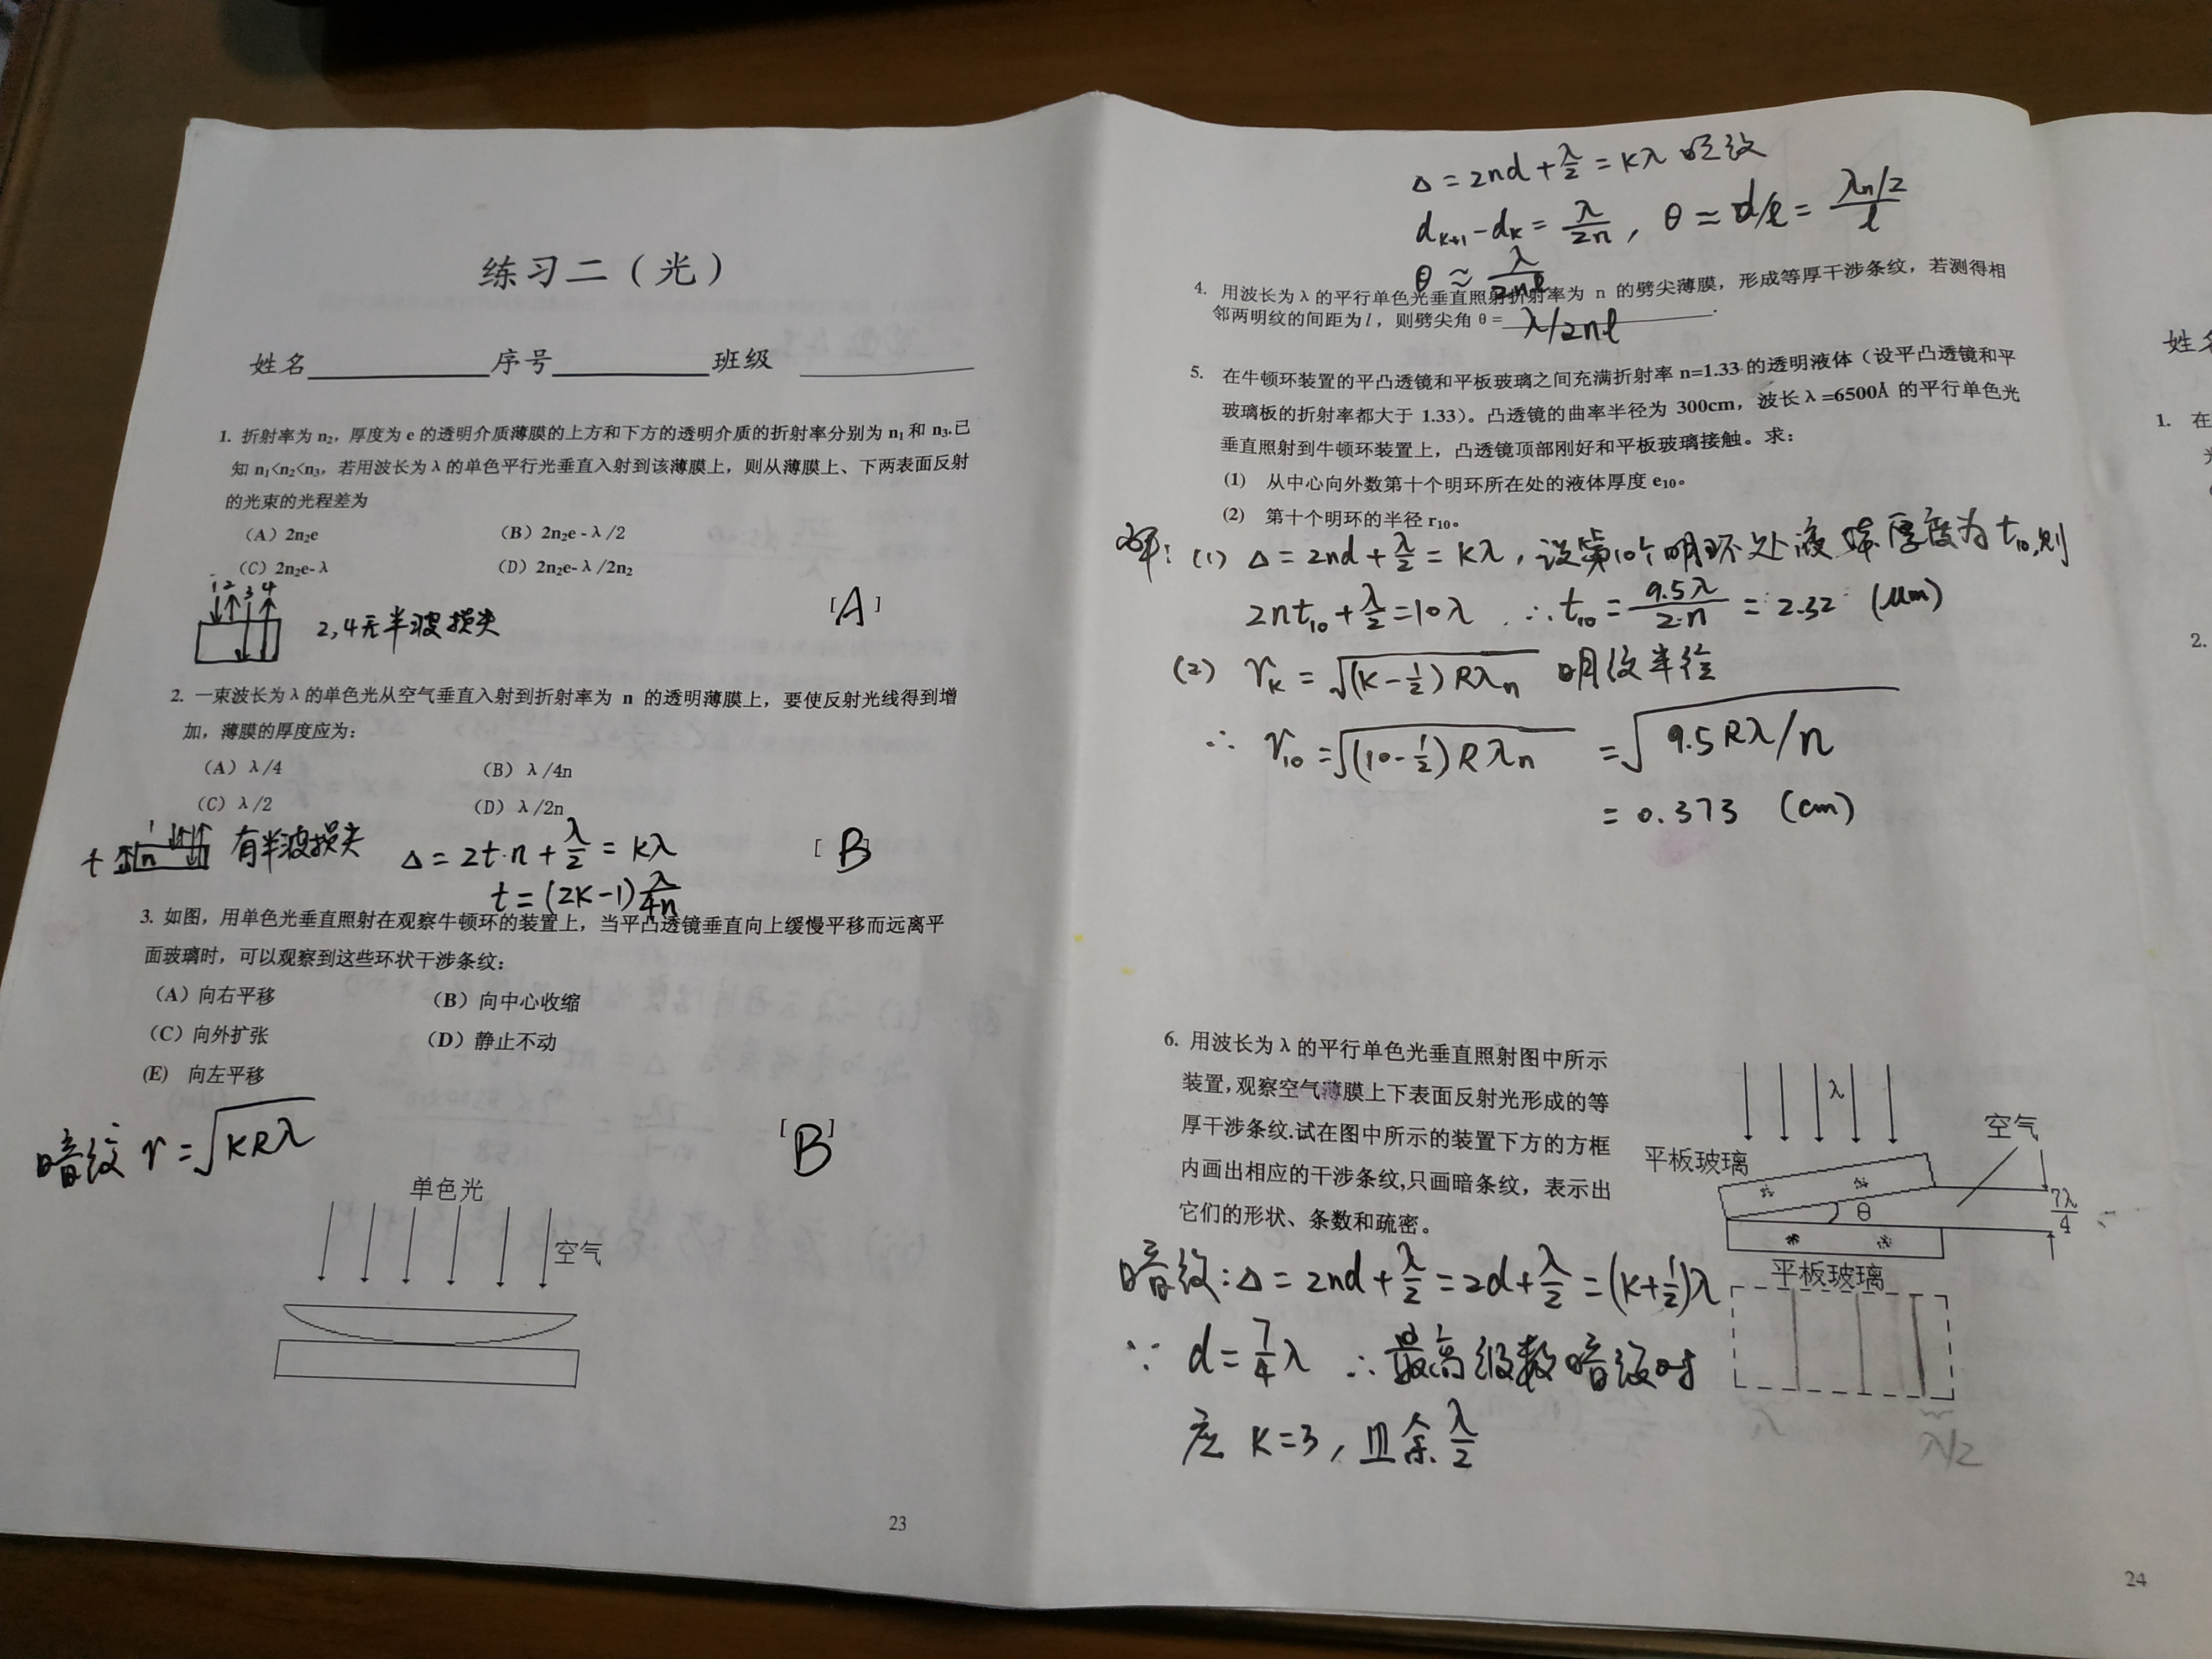 练习二（光）
姓名 序号 班级
1. 折射率为 n₂，厚度为 e 的透明介质薄膜的上方和下方的透明介质的折射率分别为 n₁ 和 n₃.已
知 n₁<n₂<n₃，若用波长为 λ 的单色平行光垂直入射到该薄膜上，则从薄膜上、下两表面反射
的光束的光程差为
（A）2n₂e （B）2n₂e - λ/2
（C）2n₂e- λ （D）2n₂e- λ/2n₂
[A]
1 2 3 4
2,4无半波损失
2. 一束波长为 λ 的单色光从空气垂直入射到折射率为 n 的透明薄膜上，要使反射光线得到增
加，薄膜的厚度应为：
（A）λ/4 （B）λ/4n
（C）λ/2 （D）λ/2n
t n 有半波损失 Δ = 2t·n + λ/2 = kλ [B]
t = (2k-1) λ/4n
3. 如图，用单色光垂直照射在观察牛顿环的装置上，当平凸透镜垂直向上缓慢平移而远离平
面玻璃时，可以观察到这些环状干涉条纹：
（A）向右平移 （B）向中心收缩
（C）向外扩张 （D）静止不动
(E) 向左平移
[B]
暗纹 r = √kRλ
单色光
空气
23
Δ = 2nd + λ/2 = kλ 明纹
dₖ₊₁ - dₖ = λ/2n , θ ≃ d/l = (λₙ/2)/l
θ ≈ λ/2nl
4. 用波长为 λ 的平行单色光垂直照射折射率为 n 的劈尖薄膜，形成等厚干涉条纹，若测得相
邻两明纹的间距为 l，则劈尖角 θ= λ/2nl .
5. 在牛顿环装置的平凸透镜和平板玻璃之间充满折射率 n=1.33 的透明液体（设平凸透镜和平
玻璃板的折射率都大于 1.33）。凸透镜的曲率半径为 300cm，波长 λ=6500Å 的平行单色光
垂直照射到牛顿环装置上，凸透镜顶部刚好和平板玻璃接触。求：
(1) 从中心向外数第十个明环所在处的液体厚度 e₁₀。
(2) 第十个明环的半径 r₁₀。
解: (1) Δ = 2nd + λ/2 = kλ , 设第10个明环处液体厚度为 t₁₀, 则
2nt₁₀ + λ/2 = 10λ ∴ t₁₀ = 9.5λ/2·n = 2.32 (μm)
(2) rₖ = √(k-1/2)Rλₙ 明纹半径
∴ r₁₀ = √(10-1/2)Rλₙ = √9.5Rλ/n
= 0.373 (cm)
6. 用波长为 λ 的平行单色光垂直照射图中所示
装置，观察空气薄膜上下表面反射光形成的等
厚干涉条纹.试在图中所示的装置下方的方框
内画出相应的干涉条纹,只画暗条纹，表示出
它们的形状、条数和疏密。
λ
空气
平板玻璃
θ
7λ/4
平板玻璃
暗纹: Δ = 2nd + λ/2 = 2d + λ/2 = (k+1/2)λ
∵ d = 7/4 λ ∴ 最高级数暗纹对
应 k=3, 且余 λ/2
λ
λ/2
24
姓名
1. 在
2.